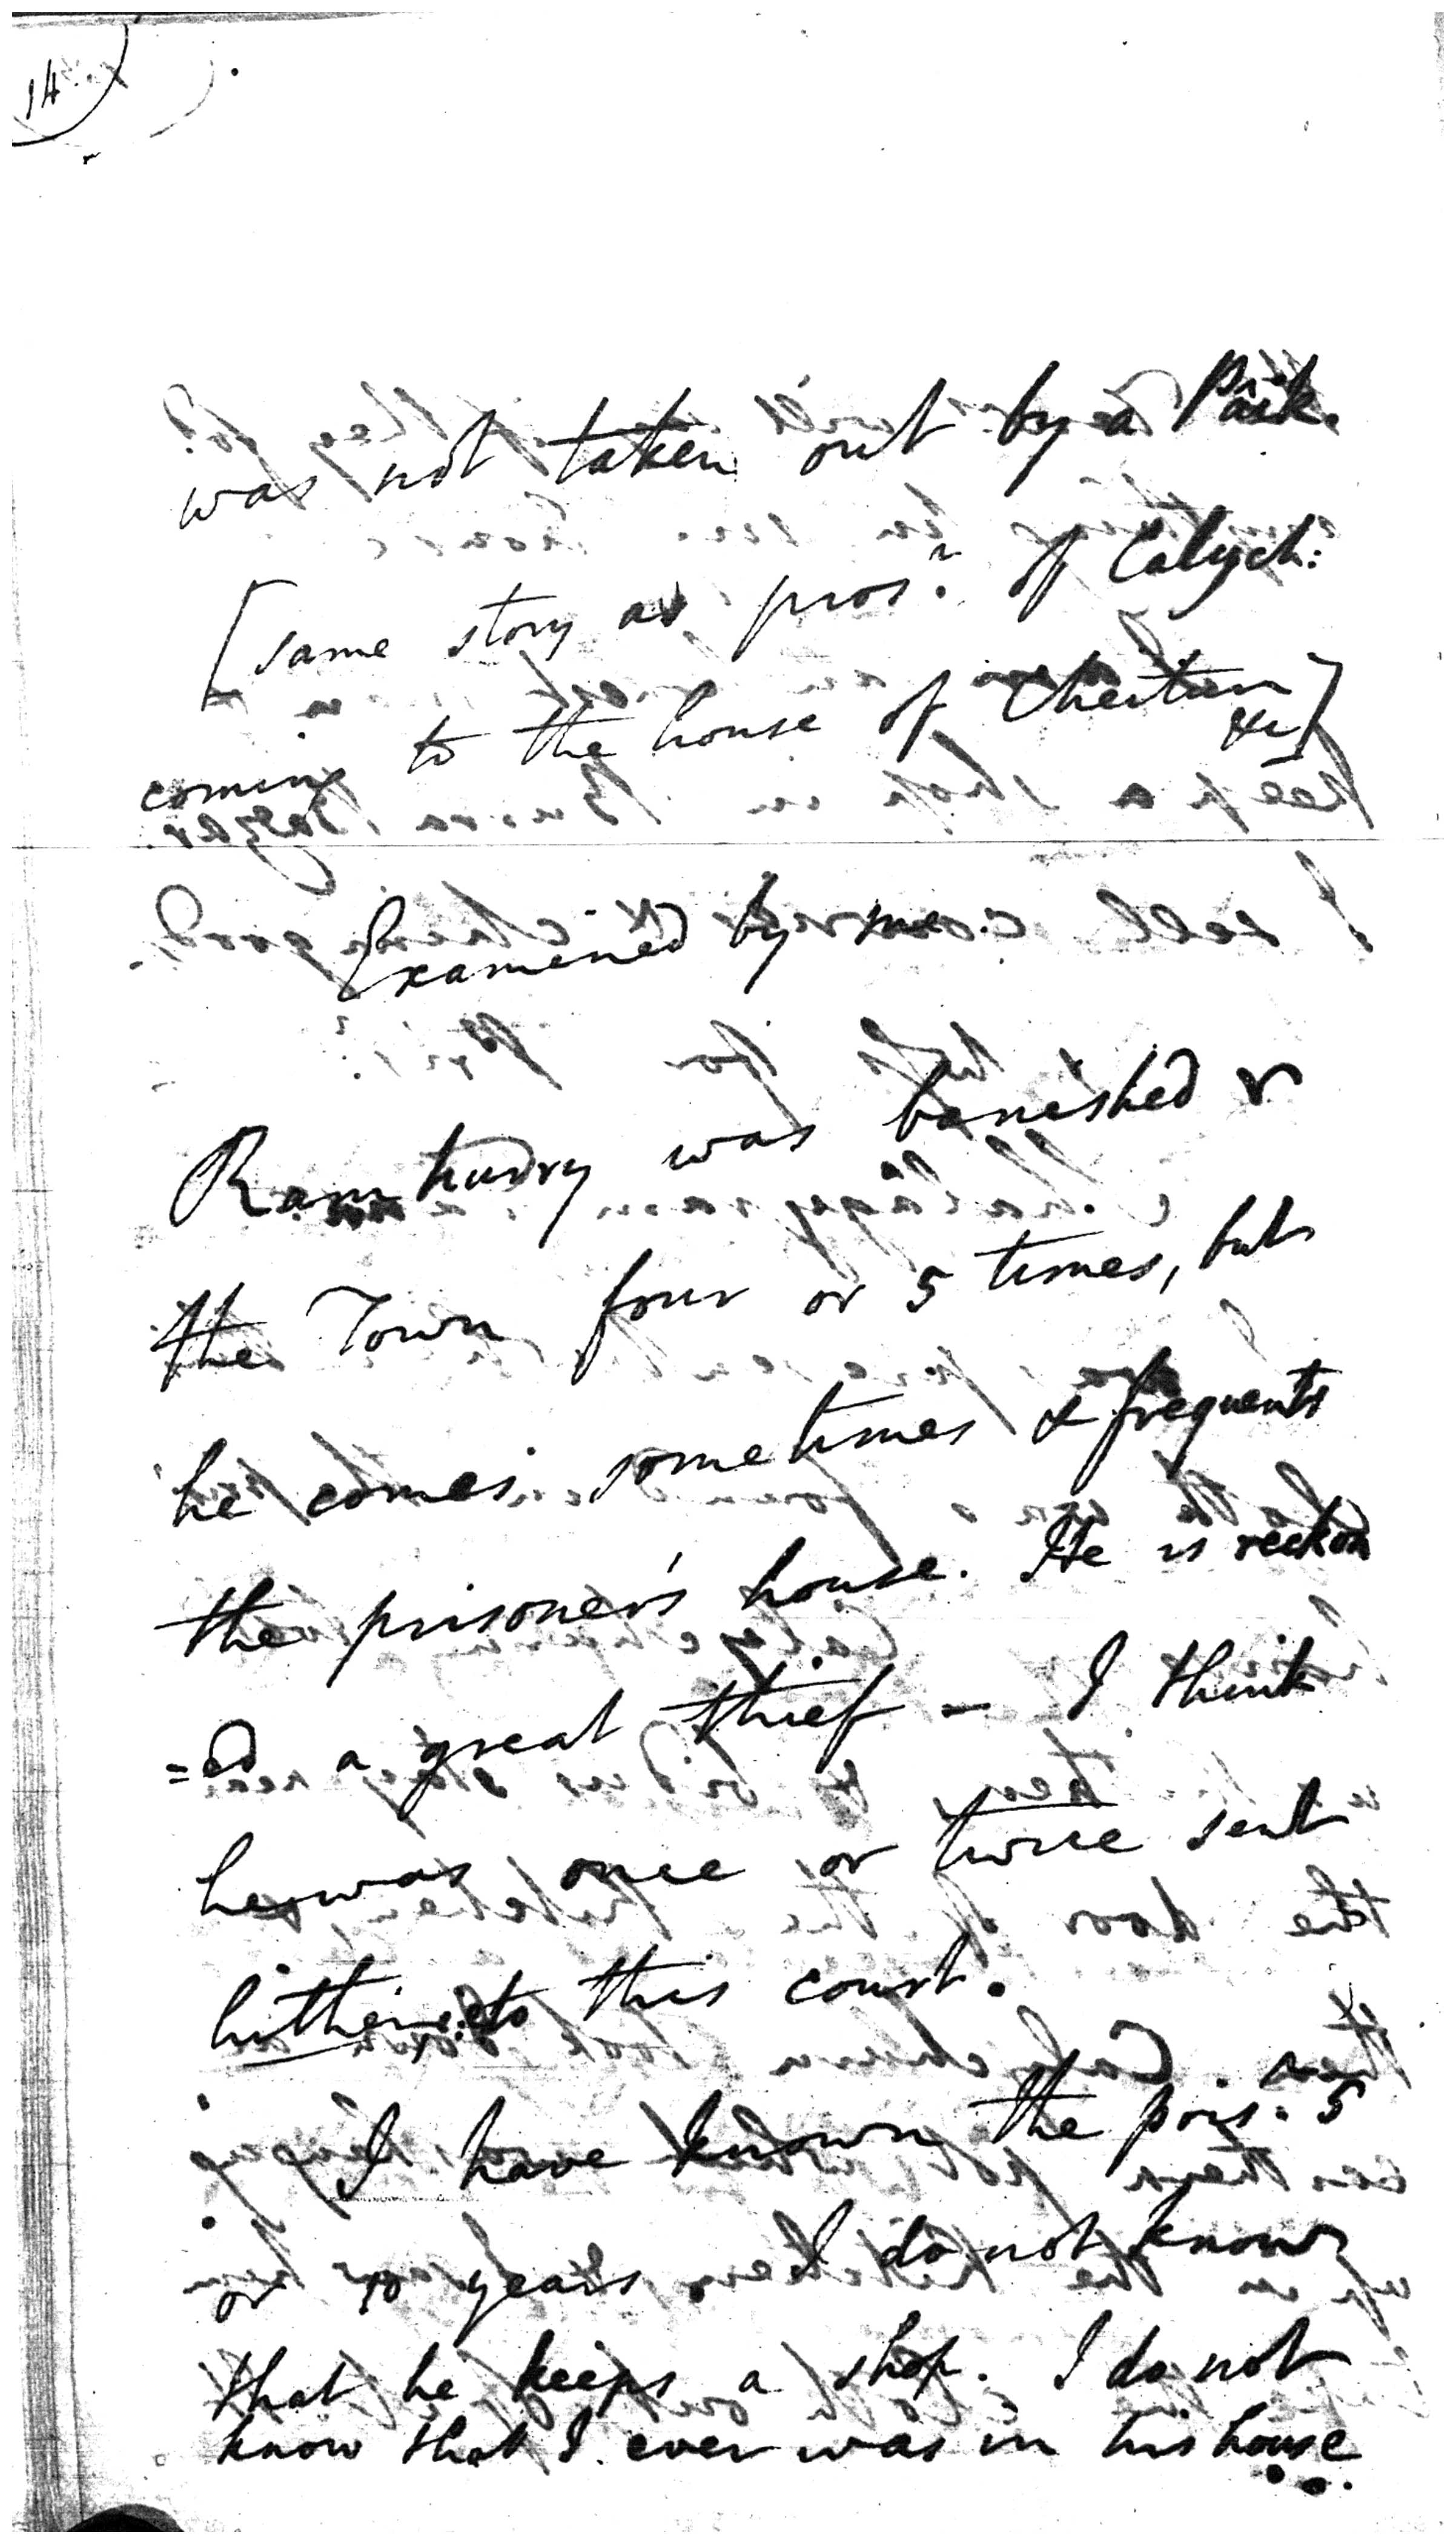 14
was not taken out by a Pâik.
[same story as pros.r of Calych:
coming to the house of Cheitun &c]
Examined by me.
Ram hurry was banished
the Town four or 5 times, but
he comes sometimes & frequents
the prisoner's house. He is reckon
=ed a great thief - I think
he was once or twice sent
hither to this court.
I have known the pris.r 5
or 10 years I do not know
that he keeps a shop. I do not
know that I ever was in his house